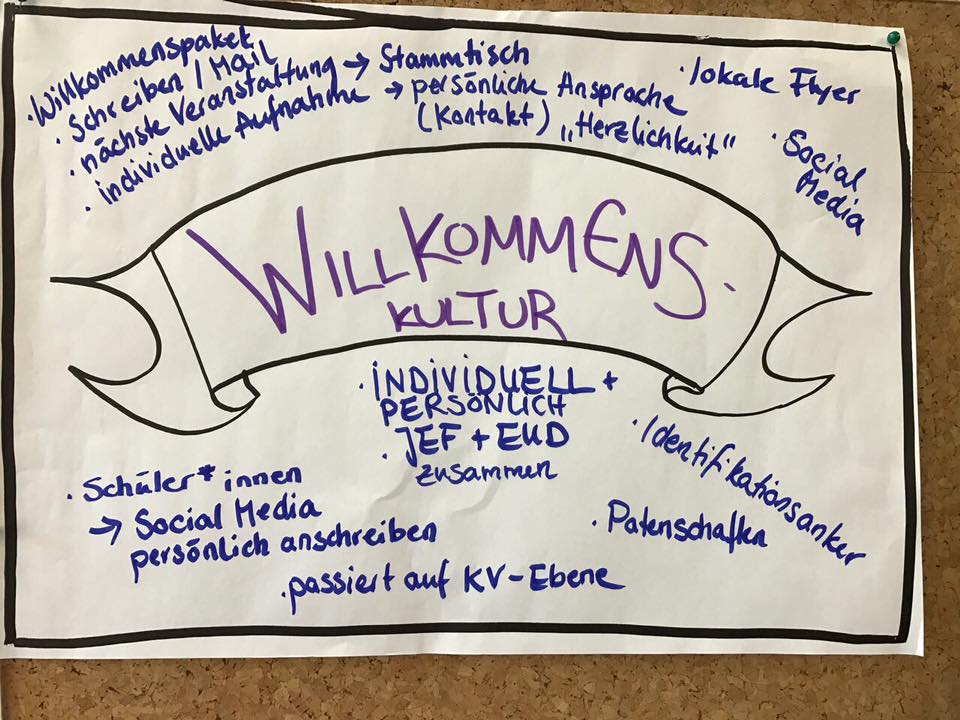 · Willkommenspaket
· Schreiben / Mail
· nächste Veranstaltung → Stammtisch
· individuelle Aufnahme → persönliche Ansprache
(Kontakt) „Herzlichkeit"
· lokale Flyer
· Social
Media
WILLKOMMENS-
KULTUR
· INDIVIDUELL +
PERSÖNLICH
· JEF + EUD
zusammen
· Identifikationsanker
· Schüler*innen
→ Social Media
persönlich anschreiben
· Patenschaften
· passiert auf KV-Ebene